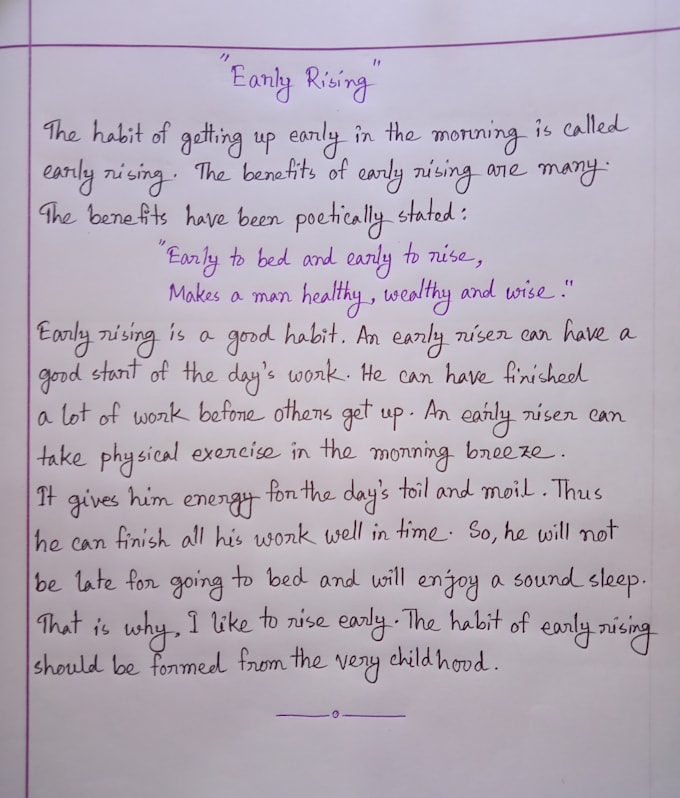 "Early Rising"
The habit of getting up early in the morning is called
early rising. The benefits of early rising are many.
The benefits have been poetically stated:
"Early to bed and early to rise,
Makes a man healthy, wealthy and wise."
Early rising is a good habit. An early riser can have a
good start of the day's work. He can have finished
a lot of work before others get up. An early riser can
take physical exercise in the morning breeze.
It gives him energy for the day's toil and moil. Thus
he can finish all his work well in time. So, he will not
be late for going to bed and will enjoy a sound sleep.
That is why, I like to rise early. The habit of early rising
should be formed from the very childhood.